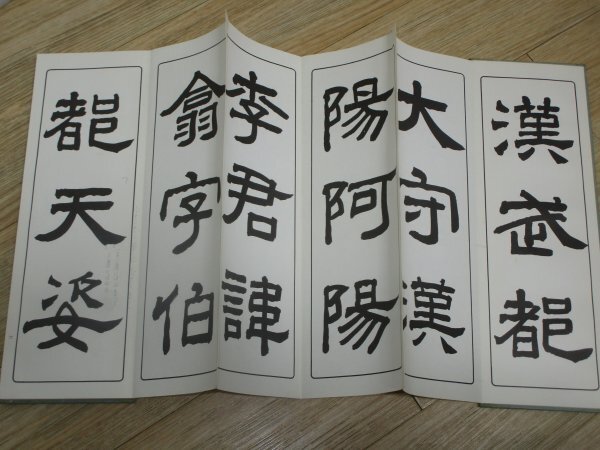 漢武都
大守漢
陽阿陽
李君諱
翕字伯
都天姿